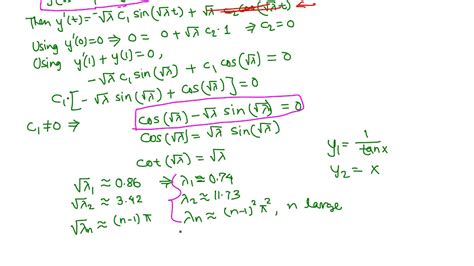 Then y'(t) = -√λ c₁ sin(√λ t) + √λ c₂ cos(√λ t) ←
Using y'(0)=0 ⇒ 0 = 0 + √λ c₂·1 ⇒ c₂=0
Using y'(1) + y(1) = 0,
-√λ c₁ sin(√λ) + c₁ cos(√λ) = 0
c₁·[-√λ sin(√λ) + cos(√λ)] = 0
c₁≠0 ⇒ cos(√λ) - √λ sin(√λ) = 0
cos(√λ) = √λ sin(√λ)
cot(√λ) = √λ
y₁ = 1/tanx
y₂ = x
√λ₁ ≈ 0.86 ⇒ λ₁ ≈ 0.74
√λ₂ ≈ 3.42 λ₂ ≈ 11.73
√λn ≈ (n-1)π λn ≈ (n-1)²π², n large